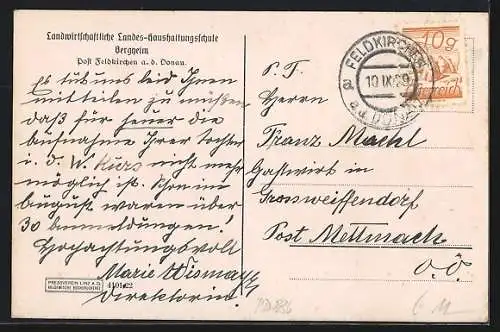 Landwirtschaftliche Landes-Haushaltungsschule
Bergheim
Post Feldkirchen a. d. Donau.
Es tut uns leid Ihnen
mitteilen zu müssen
daß für heuer die
Aufnahme Ihrer Tochter
i. d. W. Kurs nicht mehr
möglich ist. Schon im
August waren über
30 Anmeldungen!
Hochachtungsvoll
Marie Wismayr
Direktorin.
PRESSVEREIN LINZ A. D.
4101 22
FELDKIRCHEN
10 IX 29
a.d. DONAU
10g
P. T.
Herrn
Franz Machl
Gastwirt in
Grossweiffendorf
Post Mettmach
O. Ö.